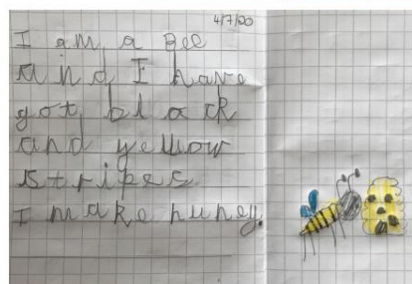 4/7/20
I am a Bee
and I have
got black
and yellow
stripes.
I make huney.